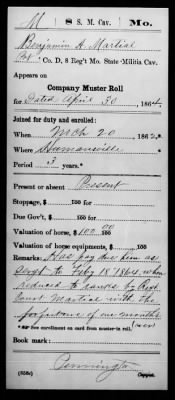 M 8 S. M. Cav. Mo.
Benjamin H. Martial
Pvt, Co. D, 8 Reg't Mo. State Militia Cav.
Appears on
Company Muster Roll
for Dated April 30, 1864.
Joined for duty and enrolled:
When Mch 20, 1862.
Where Humansville
Period 3 years.*
Present or absent Present
Stoppage, $ 100 for
Due Gov't, $ 100 for
Valuation of horse, $ 100.00 100
Valuation of horse equipments, $ 100
Remarks: Has pay due him as
Sergt to Feby 18 1864, when
reduced to ranks by Regt
Court Martial with the
forfeiture of one months
*☞ See enrollment on card from muster-in roll. (over)
Book mark:
Pennington
(858c) Copyist.